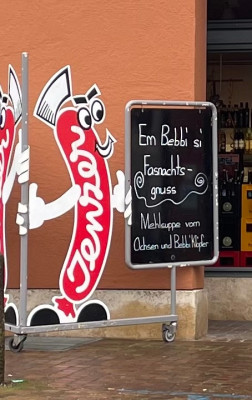 Em Bebbi si
Fasnachts-
gnuss
Mehlsuppe vom
Ochsen und Bebbi Kupfer
Jenzer